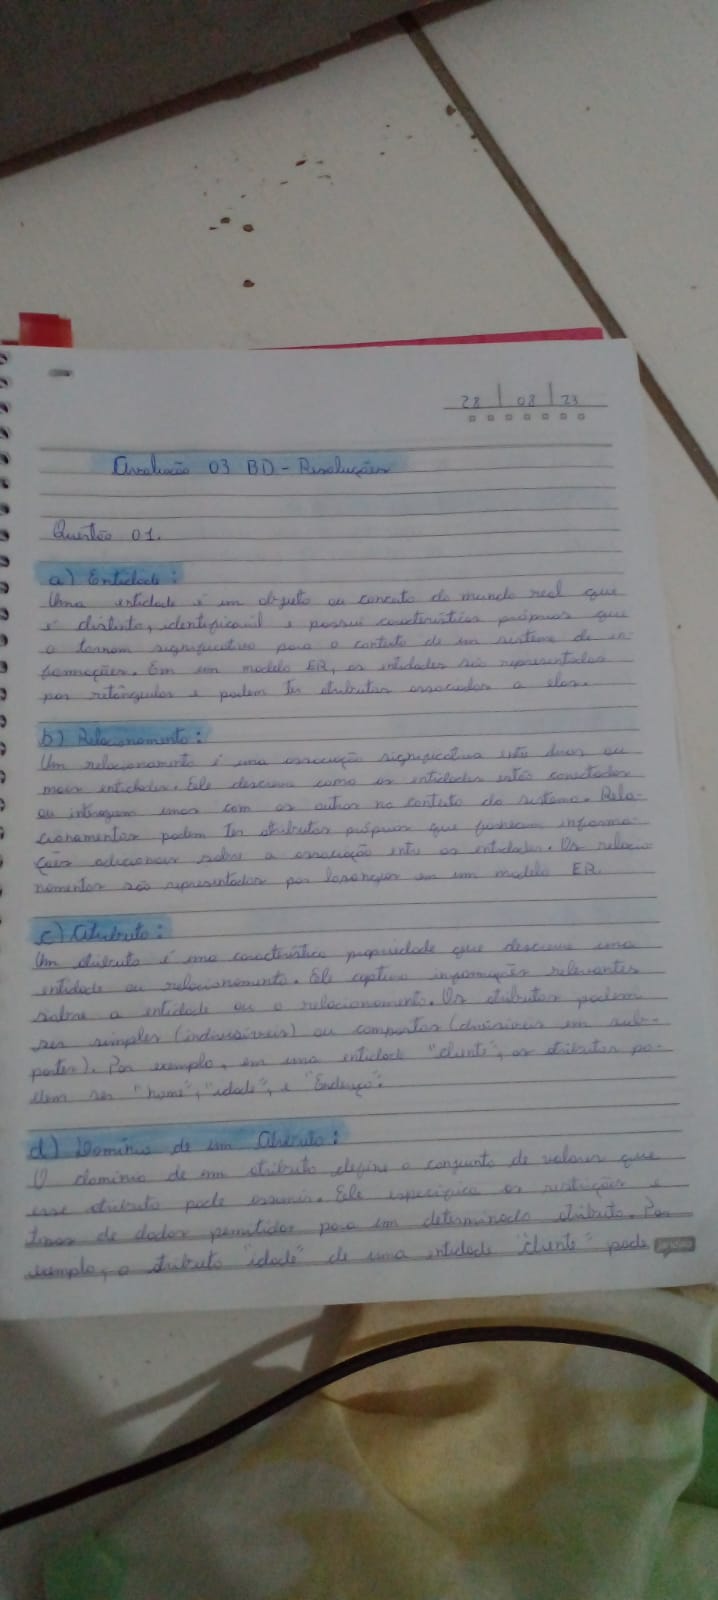 28 | 08 | 23
Avaliação 03 BD - Resoluções
Questão 01.
a) Entidade:
Uma entidade é um objeto ou conceito do mundo real que
é distinto, identificável e possui características próprias que
o tornam significativo para o contexto de um sistema de in-
formações. Em um modelo ER, as entidades são representadas
por retângulos e podem ter atributos associados a elas.
b) Relacionamento:
Um relacionamento é uma associação significativa entre duas ou
mais entidades. Ele descreve como as entidades estão conectadas
ou interagem umas com as outras no contexto do sistema. Rela-
cionamentos podem ter atributos próprios que fornecem informa-
ções adicionais sobre a associação entre as entidades. Os relacio
namentos são representados por losangos em um modelo ER.
c) Atributo:
Um atributo é uma característica propriedade que descreve uma
entidade ou relacionamento. Ele captura informações relevantes
sobre a entidade ou o relacionamento. Os atributos podem
ser simples (indivisíveis) ou compostos (divisíveis em sub-
partes). Por exemplo, em uma entidade "cliente", os atributos po-
dem ser "nome", "idade", e "Endereço".
d) Domínio de um Atributo:
O domínio de um atributo define o conjunto de valores que
esse atributo pode assumir. Ele especifica as restrições e
tipos de dados permitidos para um determinado atributo. Por
exemplo, o atributo "idade" de uma entidade "cliente" pode